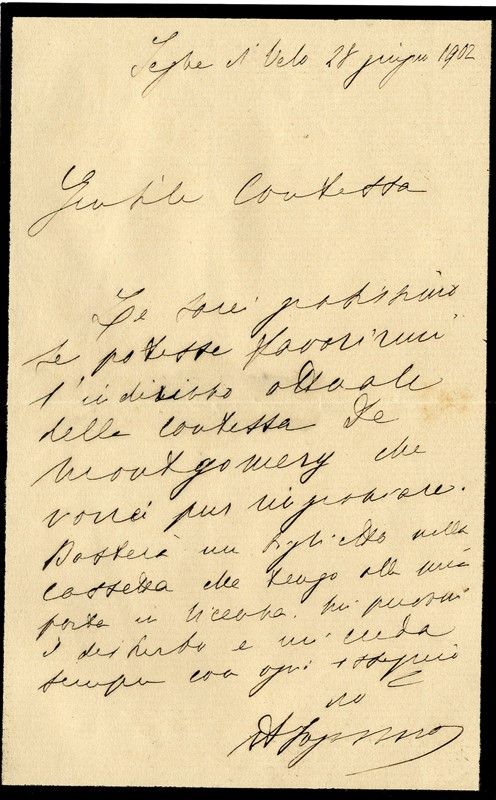 Seghe di Velo 28 giugno 1902
Gentile Contessa
Le sarei gratissimo
se potesse favorirmi
l'indirizzo attuale
della contessa De
Montgomery che
vorrei pur ringraziare.
Basterà un biglietto nella
cassetta che tengo alla mia
porta in Vicenza. Mi perdoni
il disturbo e mi creda
sempre con ogni ossequio